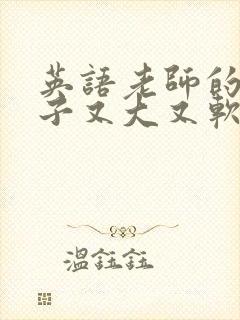 英語老師的
子又大又軟
溫鈺鈺